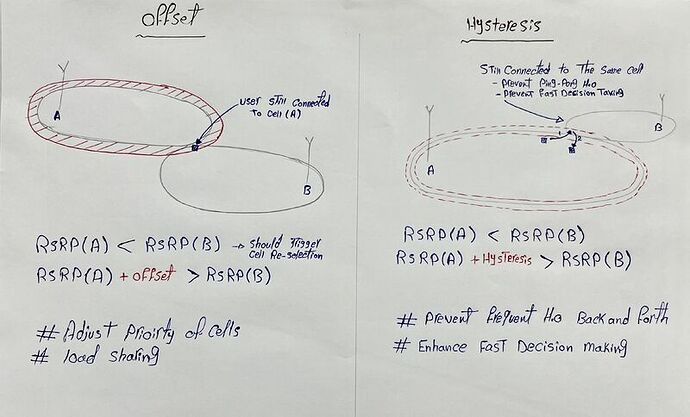 Offset
A
user still connected
to cell(A)
B
RSRP(A) < RSRP(B) → should trigger
cell Re-selection
RSRP(A) + offset > RSRP(B)
# Adjust Prioirty of cells
# load sharing
Hysteresis
Still connected to the same cell
- Prevent Ping-Pong H.o
- Prevent Fast Decision Taking
B
1
2
A
RSRP(A) < RSRP(B)
RSRP(A) + Hysteresis > RSRP(B)
# Prevent Frequent H.o Back and Forth
# Enhance Fast Decision making